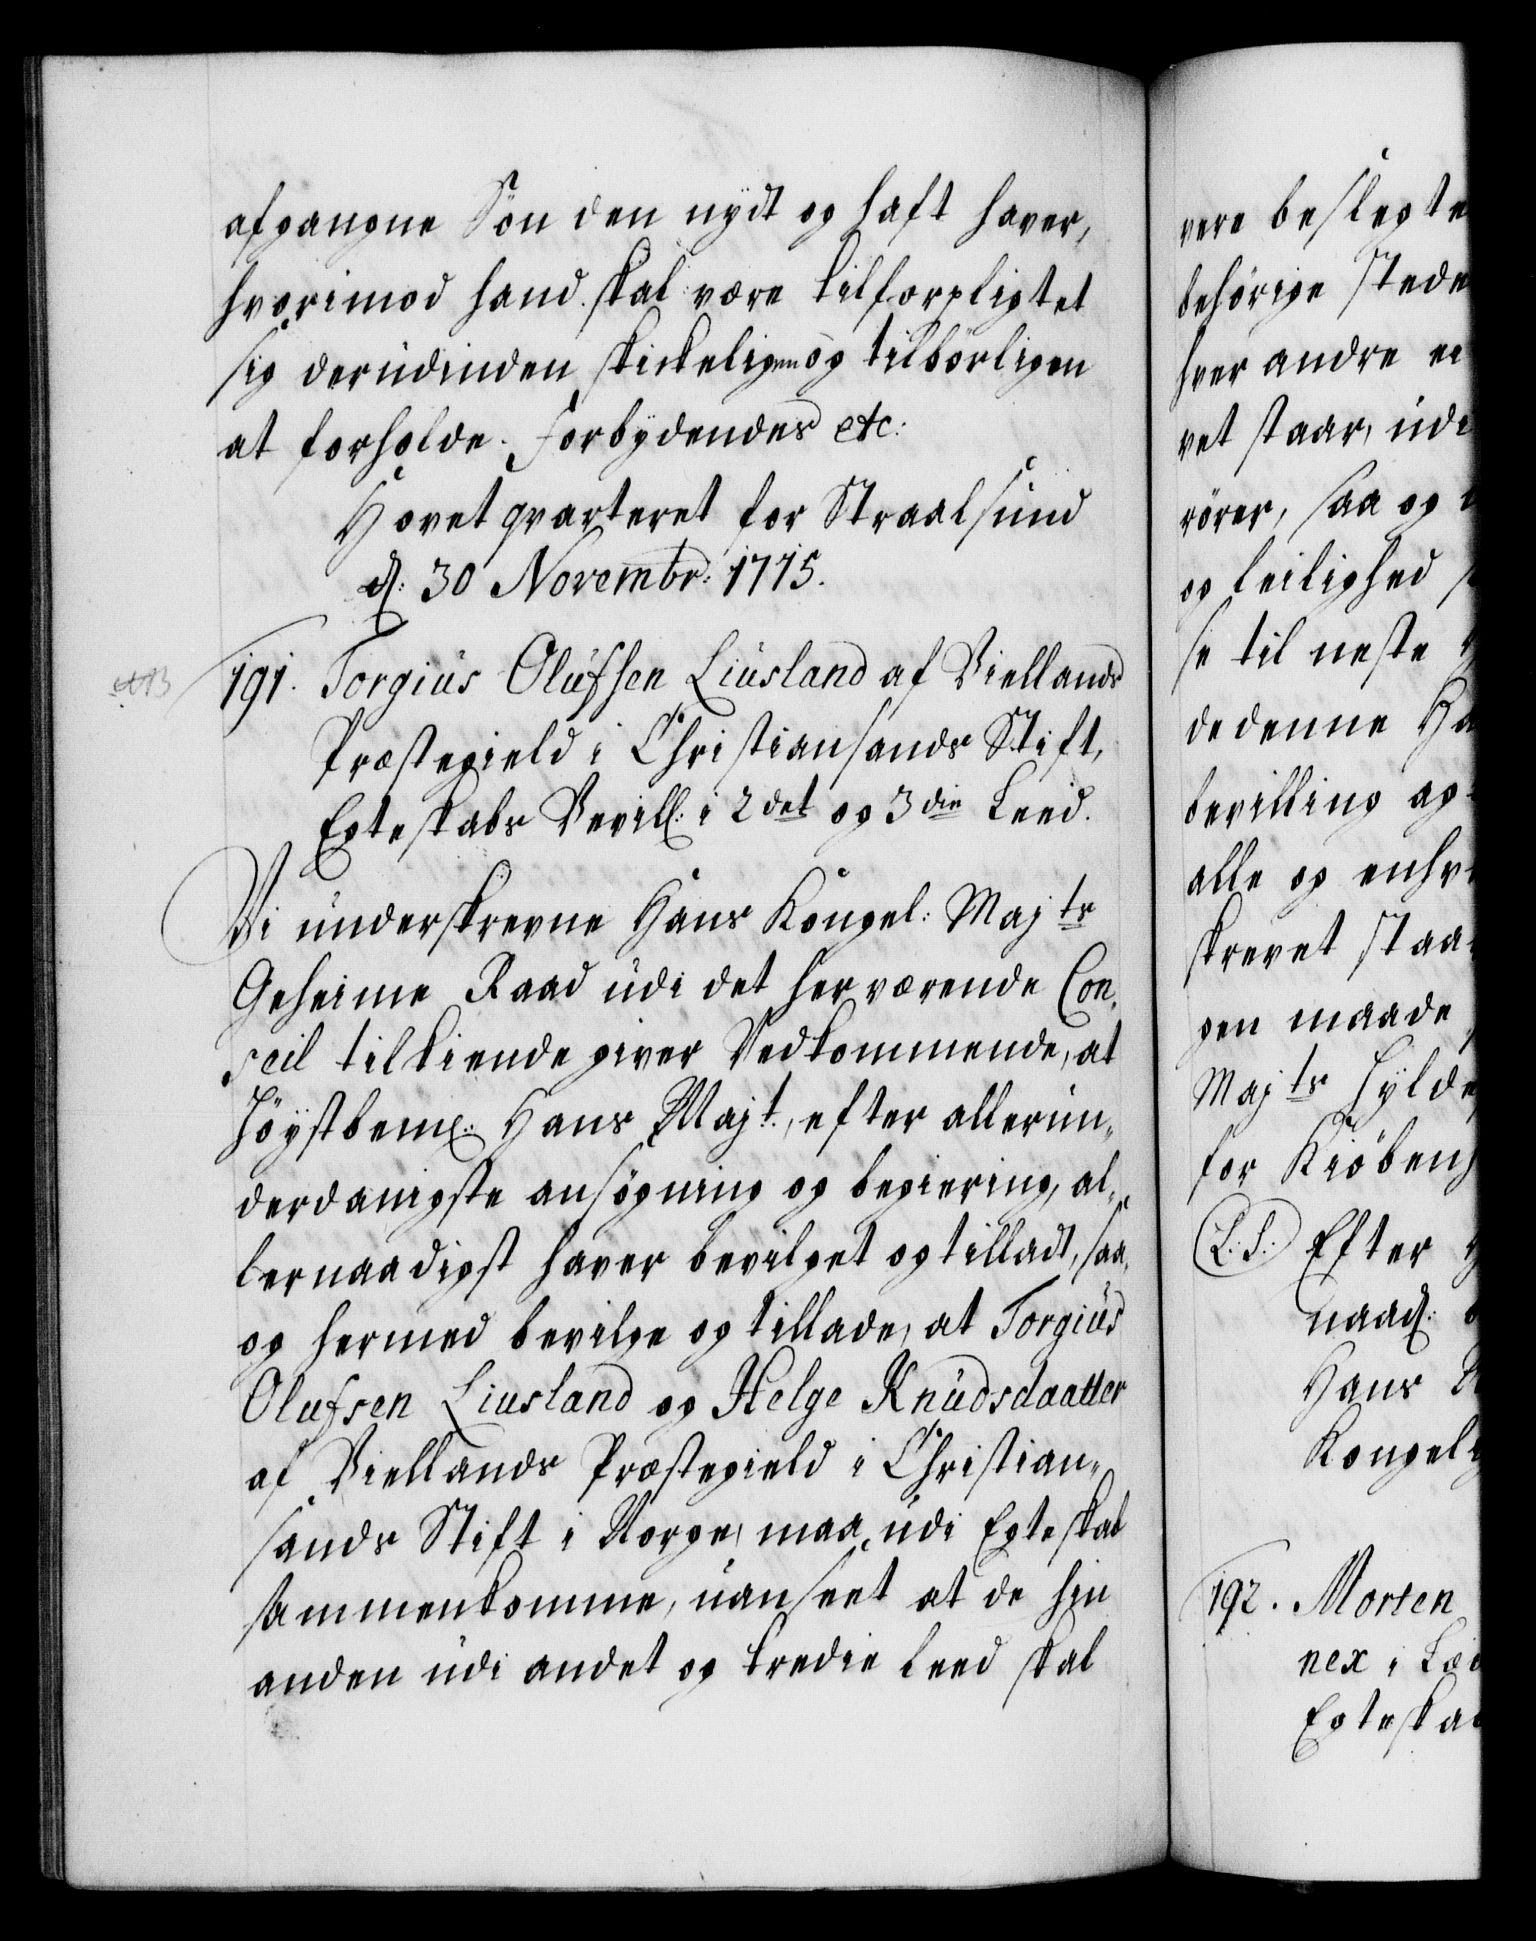 afgangne Sön den nydt og haft haver,
hvorimod hand skal være tilforpligtet
sig derudinden skickeligen og tilbörligen
at forholde. Forbydendes etc:
Hovet qvarteret for Straalsund
d: 30 Novembr: 1715.
191. Torgius Olufsen Liusland af Viellands
Præstegield i Christiansands Stift,
Egteskabs Bevill: i 2det og 3die Leed.
Vi underskrevne Hans Kongel: Majts
Geheime Raad udi det herværende Con-
seil tilkiende giver Vedkommende, at
Höystbemt: Hans Majt., efter allerun-
derdanigste ansögning og begiering, al-
lernaadigst haver bevilget og tilladt, saa
og hermed bevilge og tillade, at Torgius
Olufsen Liusland og Helge Knudsdaatter
af Viellands Præstegield i Christian-
sands Stift i Norge, maa udi Egteskab
sammenkomme, uanseet at de hin
anden udi andet og tredie Leed skal
vere beslegte
behörige stede
hver andre ei
vet staar, udi
rörer, saa og
og leilighed
se til neste
de denne Ha
bevilling ap
alle og enhve
skrevet staa
gen maade
Majts Hylde
for Kiöbenh
(L.S.) Efter
naad:
Hans
Kongel
192. Morten
nex i Læ
Egteskab